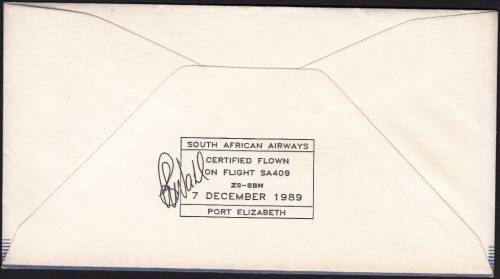 SOUTH AFRICAN AIRWAYS
CERTIFIED FLOWN
ON FLIGHT SA409
ZS-SBN
7 DECEMBER 1989
PORT ELIZABETH